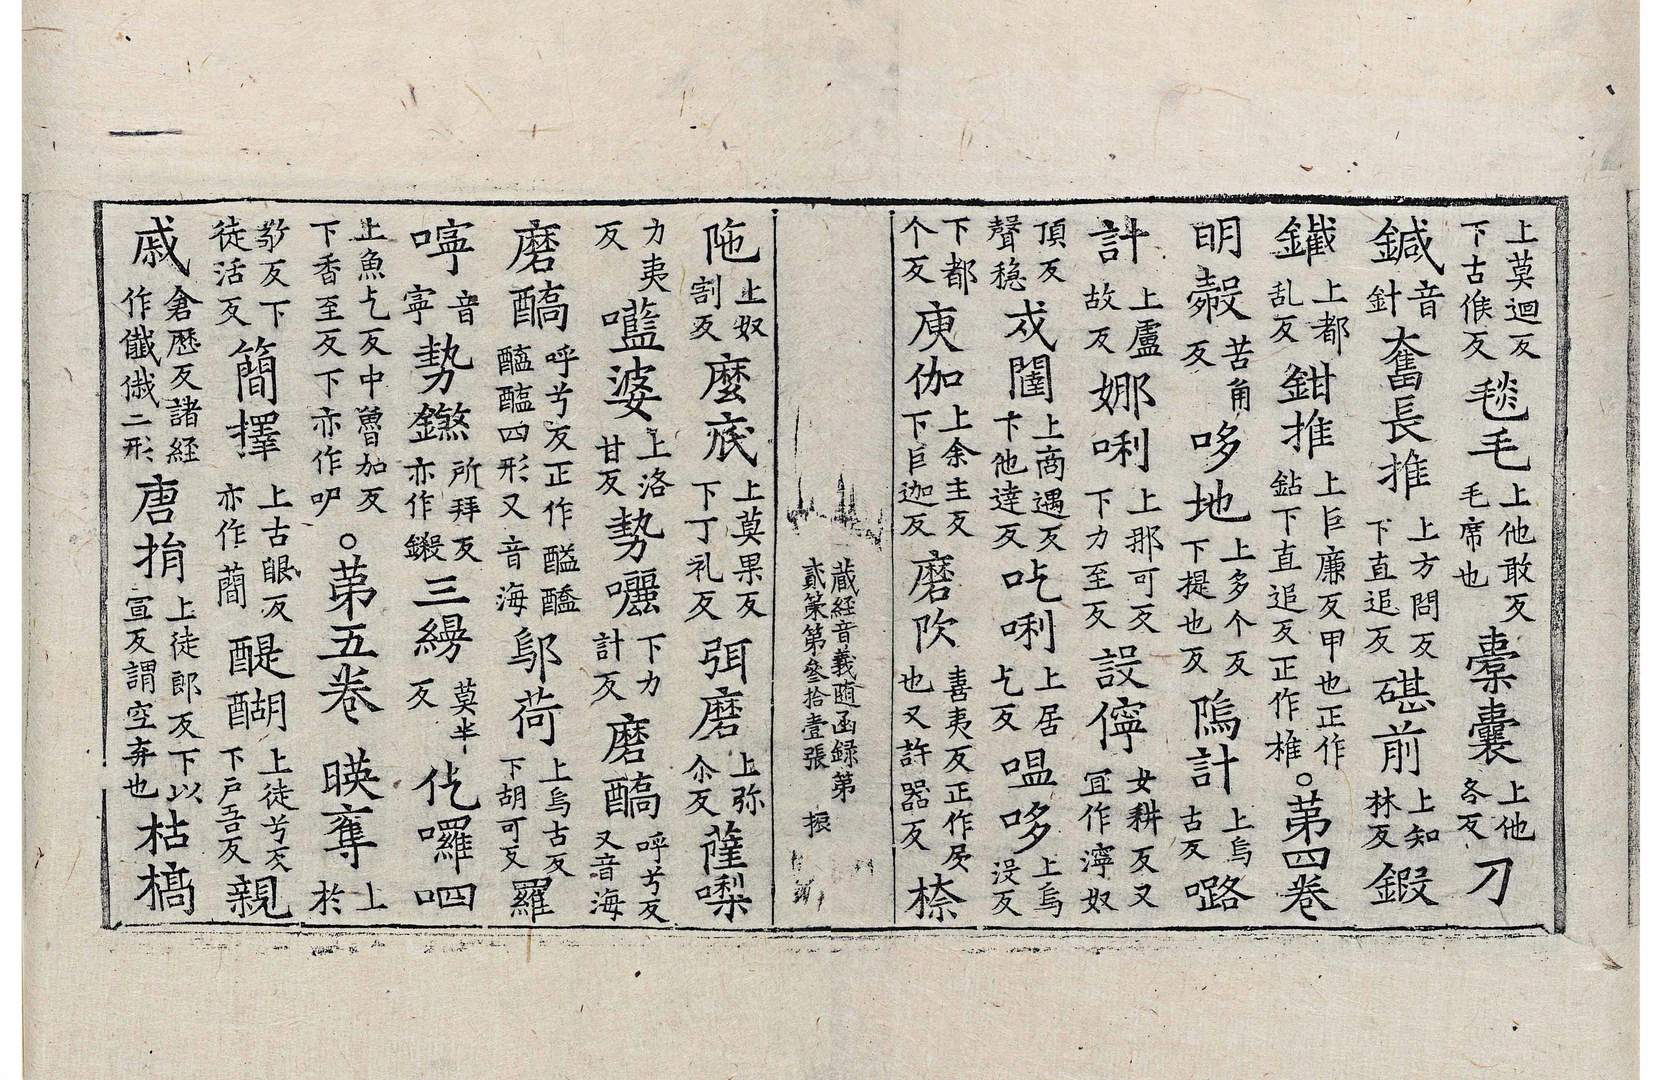 上莫迴反下古候反毯毛上他敢反毛席也橐囊上他各反刀
鍼音針奮長推上方問反下直追反碪前上知林反鍛
鑯上都乱反鉗推上巨廉反甲也正作鉆下直追反正作椎。第四卷
明㲉苦角反哆地上多个反下提也反隖計上烏古反㗉
計上盧故反娜唎上那可反下力至反設儜女耕反又冝作濘奴
頂反聲穩戍闥上商遇反下他達反吃唎上居乞反嗢哆上烏没反
下都个反庾伽上余主反下巨迦反磨吹喜夷反正作屎也又許器反㮈
藏經音義随函録第
貳筞第參拾壹張 振
陁上奴割反麼底上莫果反下丁礼反弭磨上弥尒反薩㗚
力夷反㘕婆上洛甘反勢囇下力計反磨醯呼兮反又音海
磨醯呼兮反正作醯四形又音海鄔荷上烏古反下胡可反羅
嚀音寧勢鎩所拜反亦作鎩三縵莫半反仡囉呬
上魚乞反中魯加反下香至反下亦作呬。第五卷 暎奪上於
敬反下徒活反簡擇上古眼反亦作蕳醍醐上徒兮反下戶吾反親
戚倉歷反諸經作㦰俄二形唐捐上徒郎反下以宣反謂空弃也枯槁